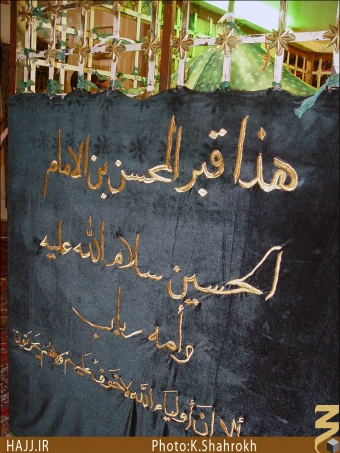 هذا قبر المحسن بن الامام
الحسين سلام الله عليه
وأمه رباب
ألا ان أولياء الله لا خوف عليهم ولا هم يحزنون
HAJJ.IR
Photo:K.Shahrokh